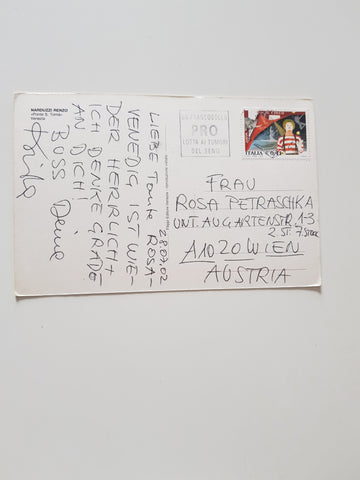 NARDUZZI RENZO
«Ponte S. Tomà»
Venezia
28.07.02
LIEBE Tante ROSA-
VENEDIG IST WIE-
DER HERRLICH+
ICH DENKE GRADE
AN DICH!
BUSS Deine
PRO
LOTTA AI TUMORI
DEL SENO
ITALIA
FRAU
ROSA PETRASCHKA
UNT. AUGARTENSTR. 1-3
2. ST. 7. STOCK
A1020 WIEN
AUSTRIA